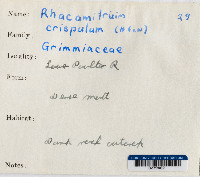 Name: Rhacomitrium 28
crispulum (H&W)
Family:
Grimmiaceae
Locality:
Form:
Dense mat
Habitat:
Dark rock outcrop
Notes: